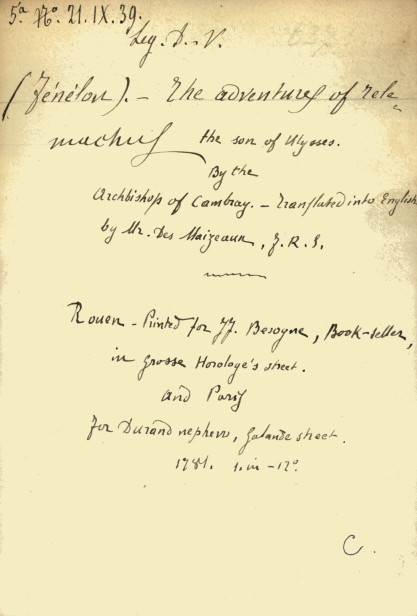 5.a No. 21.IX.39.
Leg. D.-V.
(Fénélon). - The adventures of Tele=
machus the son of Ulysses.
By the
Archbishop of Cambray. - Translated into English
by Mr. Des Maizeaux, F.R.S.
Rouen - Printed for JJ. Besogne, Book-seller,
in Grosse Horologe's street.
and Paris
for Durand nephew, Galande street.
1781. 1. in-12°.
C.